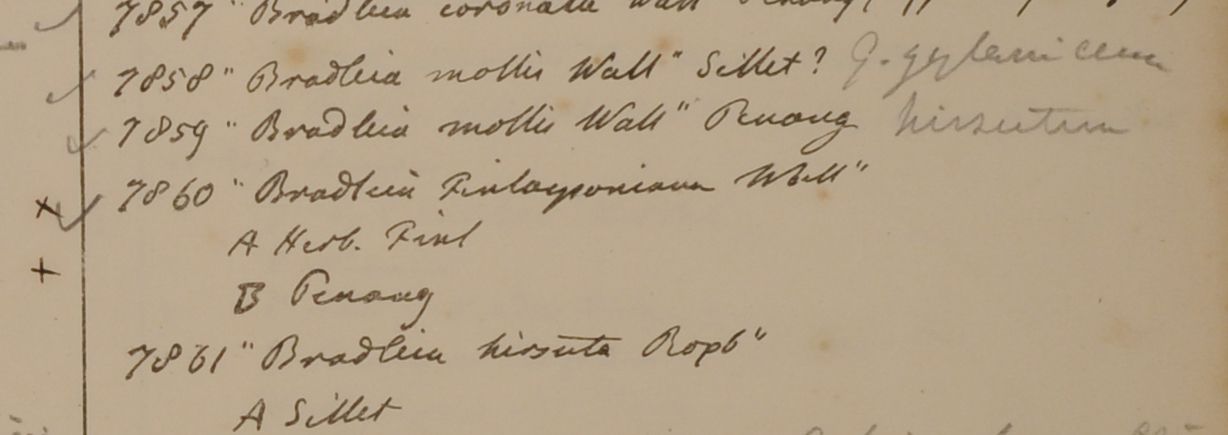 7857 " Bradleia coronata Wall Penang
7858 " Bradleia mollis Wall " Sillet? G. zeylanicum
7859 " Bradleia mollis Wall " Penang hirsutum
7860 " Bradleia Finlaysoniana Wall "
A Herb. Finl
B Penang
7861 " Bradleia hirsuta Roxb "
A Sillet